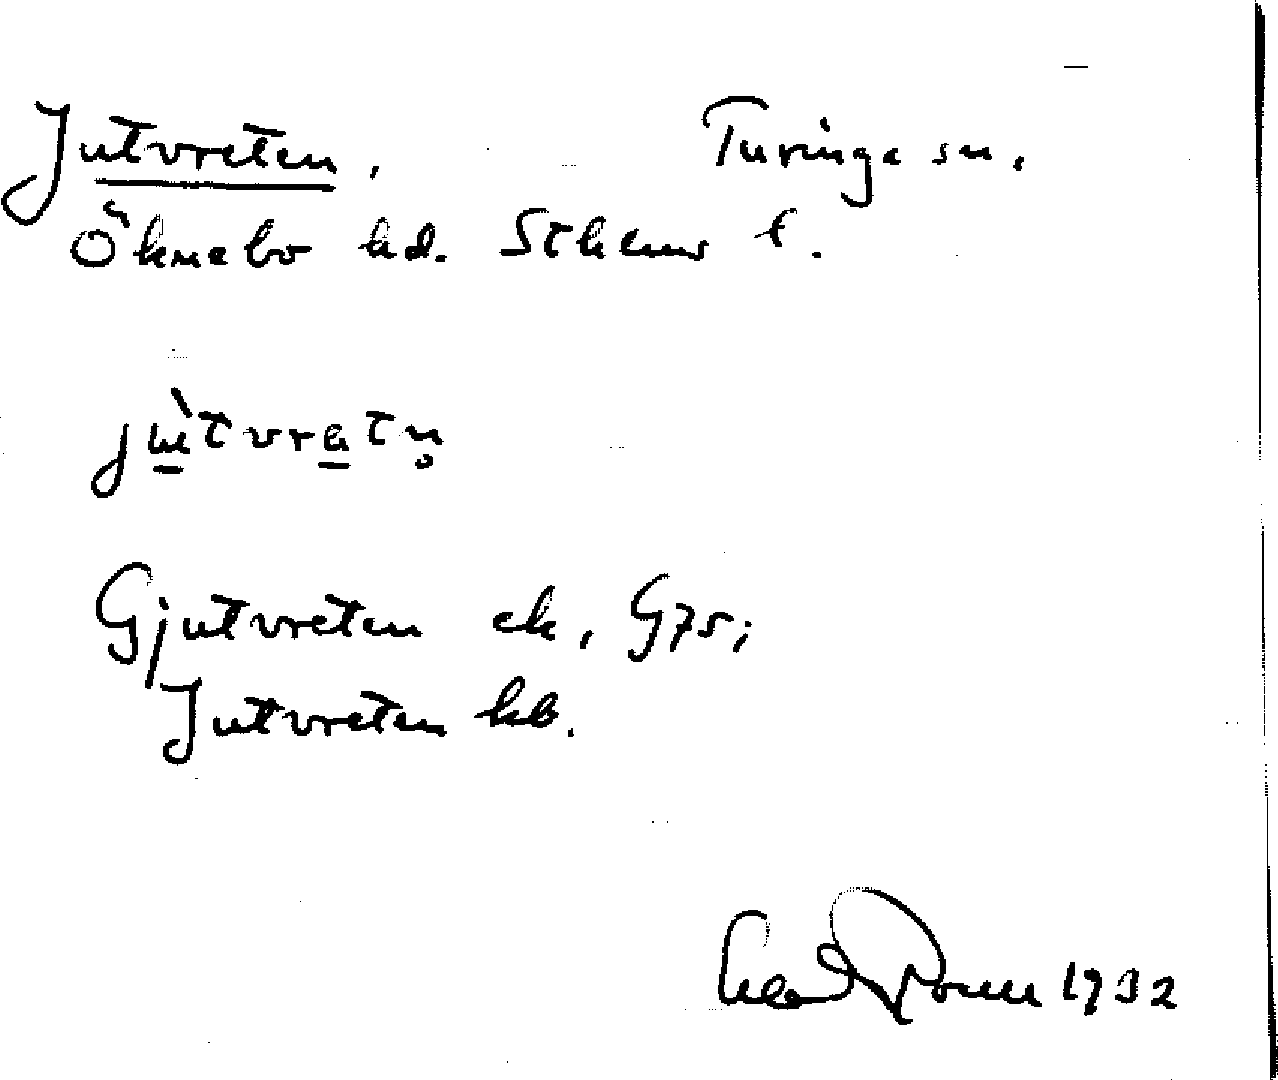 Jutvreten, Turinge sn.
Öknebo hd. Sthlms l.
jùtvratn̥
Gjutvreten ek, G75;
Jutvreten kb.
1932